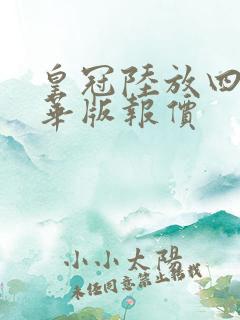 皇冠陸放四
華版報價
小小太陽
未經同意禁止轉載